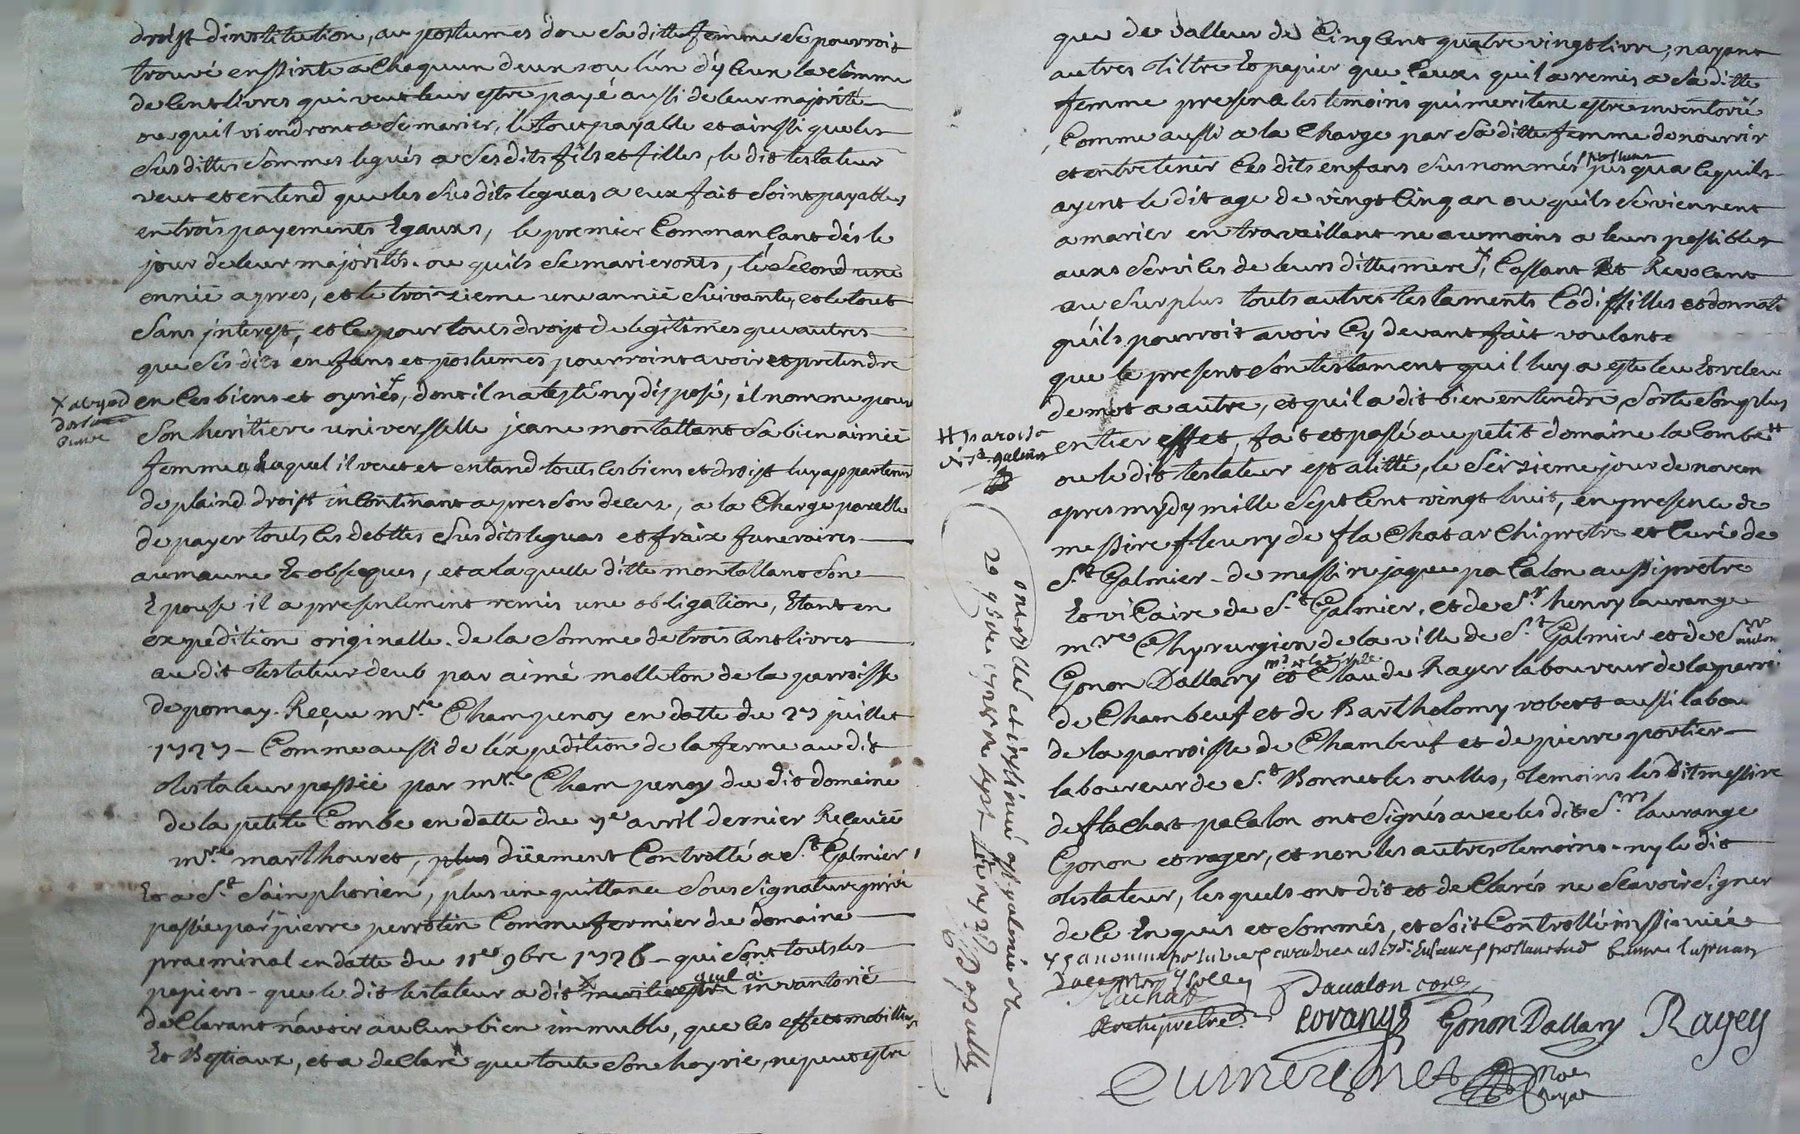 droist dinstitution, au postumes dou sa ditte femme se pourroit
trouvé enssinte a chaquun deux sou l'un d'yceux la somme
de cent livres qui veut leur estre payé aussi de leur majorité
ou quil viendront a se marier, le tout payable et ainssi que les
susdittes sommes legués a ses dits fils et filles, le dit testateur
veut et entend que les susdits leguas a eux fait soint payables
en trois payements Egaux, le premier commançant dés le
jour de leur majorités ou quils se marieronts, le second une
année apres, et le troizieme une année suivante, et le tout
sans interest, et ce pour touts droist de legitimes que autres
que ses dits enfans et postumes pourroint avoir et pretendre
en ces biens et oyries, dont il na testé ny disposé, il nomme pour
son heritiere universselle jeane montallant sa bien aimée
femme a laquel il veut et entand touts les biens et droist luy appartenir
de plaind droist incontinant apres son deces, a la charge par elle
de payer touts les debttes susdits leguas et fraix funeraires
aumaune Et obseques, et a laquelle ditte montallant son
Epouse il a presentement remis une obligation, Etant en
expedition originelle de la somme de trois cent livres
au dit testateur deub par aimé molleton de la parroisse
de pomay. Reçue mre Champenoy en datte du 27 juillet
1727 - Comme aussi de l'expedition de la ferme au dit
testateur passée par mre Champenoy du dit domaine
de la petite Combe en datte du 7e avril dernier Reçeüee
mre marthouret, düement Controllé a St Galmier
Et a St Sainphorien, plus une quittance sous signature privé
passée par pierre perrotin Comme fermier du domaine
praeminal en datte du 11e 9bre 1726 - qui sont touts les
papiers - que le dit testateur a dit invantorié
declarant n'avoir aucun bien immuble, que les effets mobilliers
Et Bestiaux, et a declaré que toute son hoyrie, ne peut estre
que de valleur de Cinq Cent quatre vingt livre, n'ayant
autres tiltre Et papier que ceux quil a remis a sa ditte
femme presence les temoins qui meritent estre inventorié
Comme aussi a la Charge par sa ditte femme de nourrir
et entretenir Ces dits enfans susnommés jusqua cequils
ayent le dit age de vingt Cinq an ou quils se viennent
a marier en travaillant neaumoins a leurs possibles
aux services de leurs ditte mere, Cassant Et Revocant
au surplus touts autres testaments Codicilles et donnati
quils pourroit avoir Cy devant fait voulant
que le present son testament quil luy a esté leu Et releu
de mot a autre, et quil a dit bien entendre, sorte son plus
entier effet, fait et passé au petit domaine la Combe
ou le dit testateur est alitté, le seizieme jour de novem
apres mydy mille sept Cent vingt huit, en presence de
messire fleury de flachat archipretre et Curé de
St Galmier - de messire jaque pacalon aussi pretre
Et vicaire de St Galmier, et de Sr henry laurange
mre Chyrurgien de la ville de St Galmier et de Sr
Gonon Dallary et Claude Rayer laboureur de la parroi
de Chambeuf et de Barthelomy robert aussi labou
de la parroisse de Chambeuf et de pierre portier
laboureur de St Bonnet les oulles, temoins les dit messire
de flachat pacalon ont signés avec les dit Srs laurange
Gonon et rayer, et non les autres temoins - ny le dit
testateur, les quels ont dit et declarés ne scavoir signer
de Ce Enquis et sommés, et soit Controllé inssinuée
flachat
Archipretre
pacalon
Lorange
Gonon Dallary
Rayey
#paroisse
de St galmier